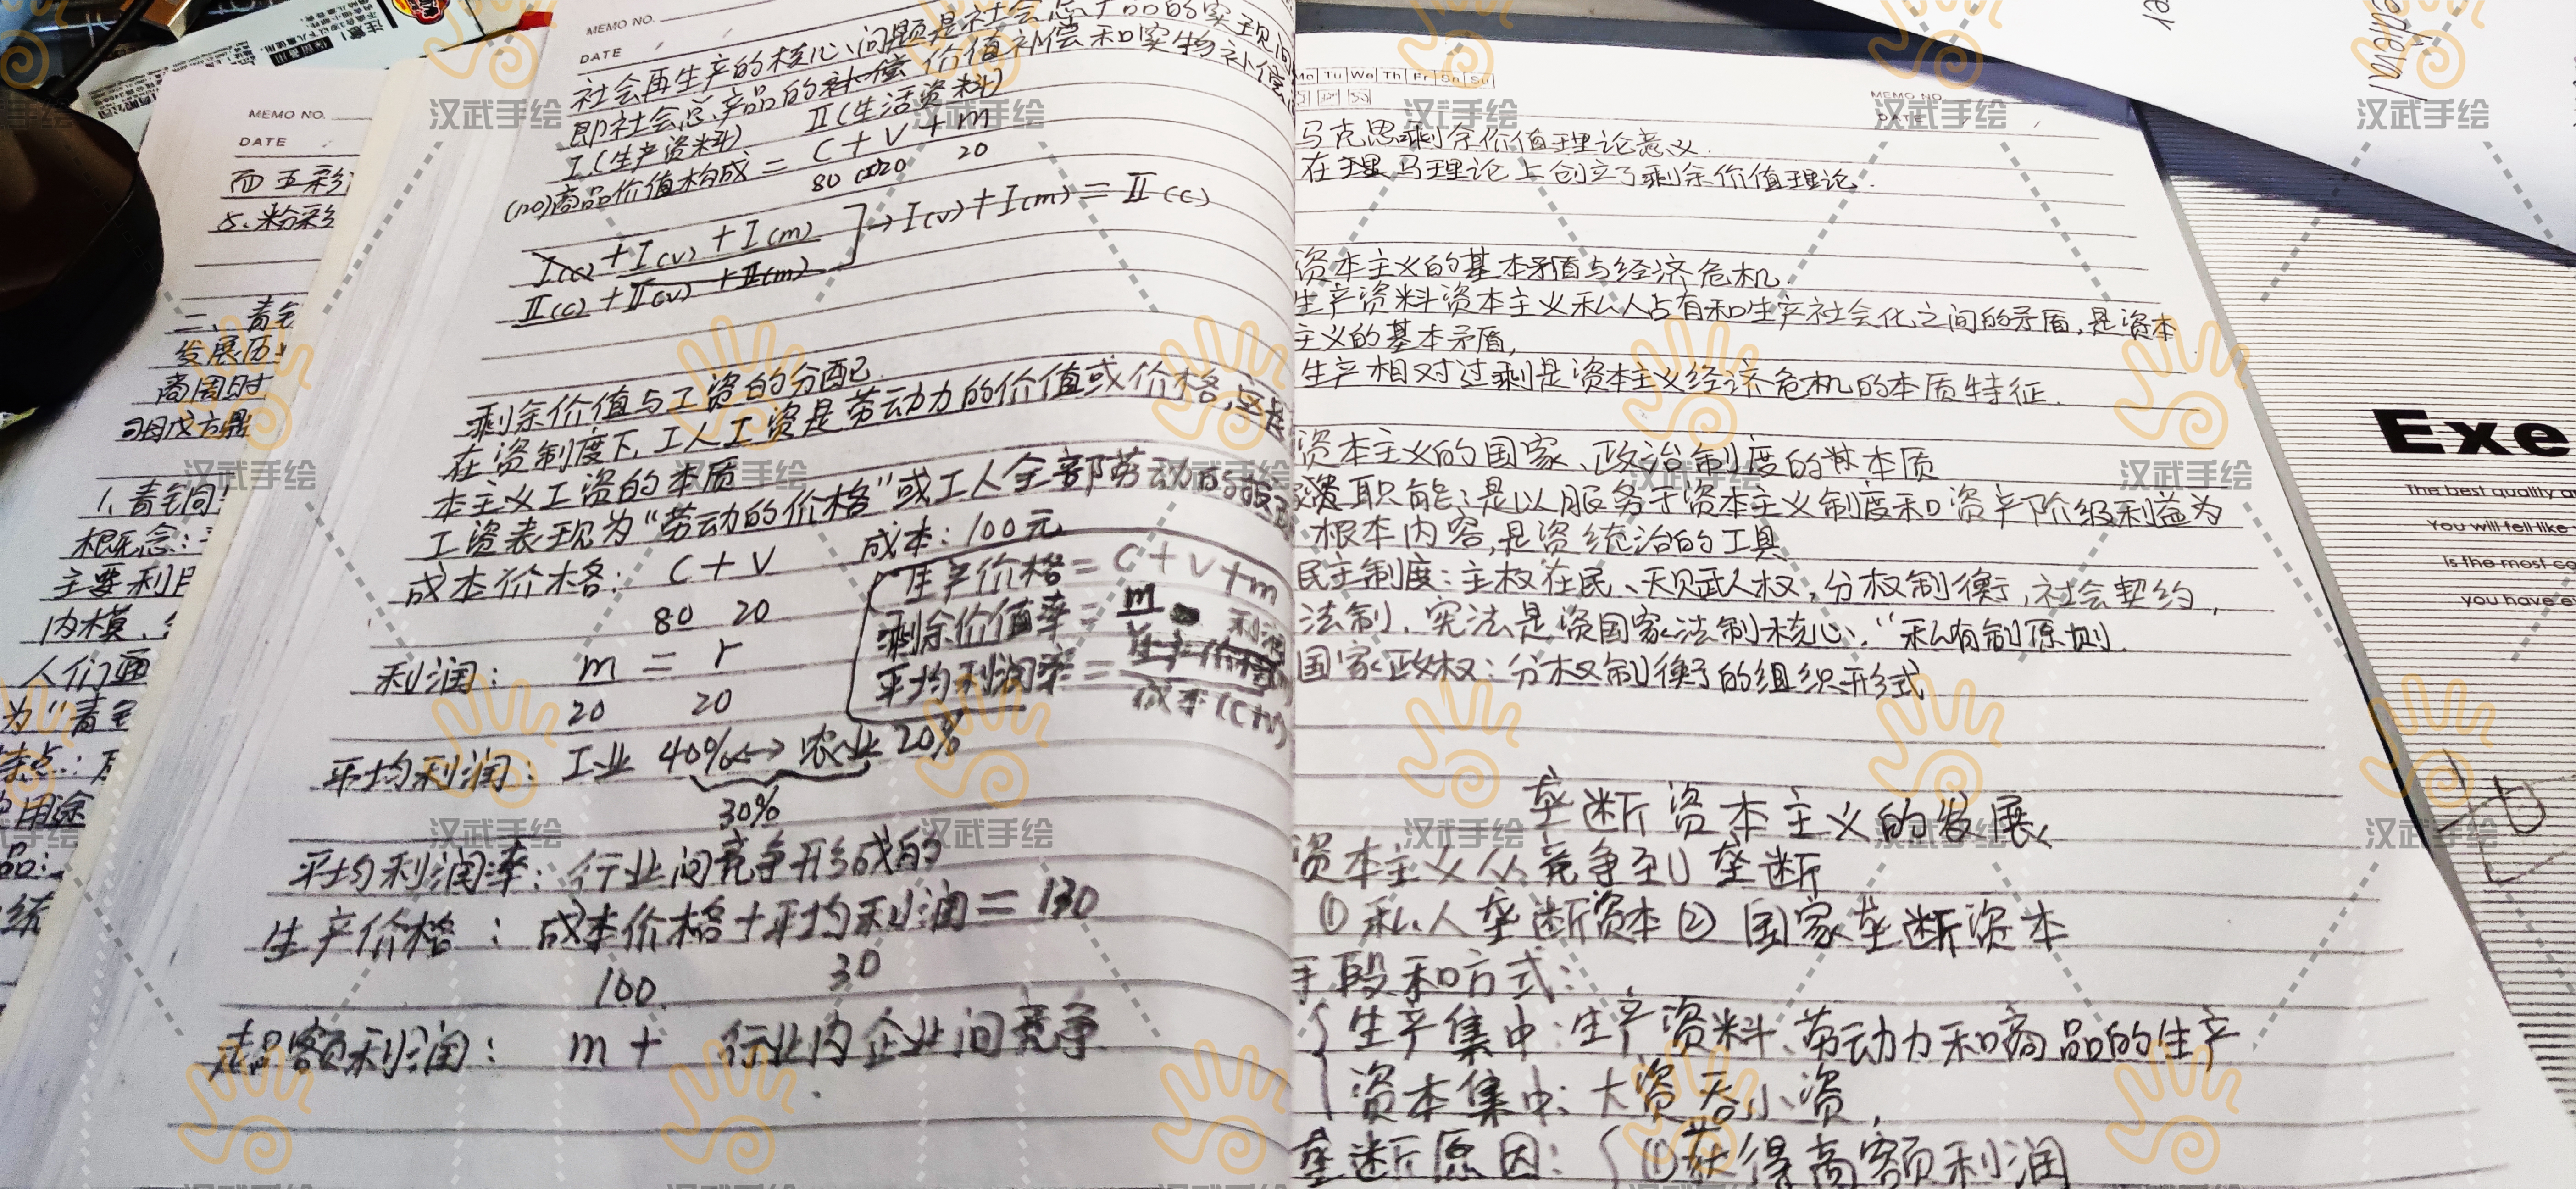 MEMO NO.
DATE
社会再生产的核心问题是社会总产品的实现问
即社会总产品的补偿 价值补偿和实物补偿
I(生产资料) II(生活资料)
(120)商品价值构成 = C + V + m
80 20 20
I(c) + I(v) + I(m)
II(c) + II(v) + II(m)
→ I(v) + I(m) = II(c)
剩余价值与工资的分配
在资制度下,工人工资是劳动力的价值或价格,
本主义工资的本质
工资表现为“劳动的价格”或工人全部劳动的报
成本价格: C + V 成本: 100元
80 20
生产价格 = C + V + m
剩余价值率 = m
V
利润: m = r
20 20
平均利润率 = 利润
成本(C+V)
平均利润: 工业 40% ↔ 农业 20%
30%
平均利润率: 行业间竞争形成的
生产价格: 成本价格+平均利润 = 130
100 30
超额利润: m + 行业内企业间竞争
MEMO NO.
DATE
而五彩
5.粉彩
二、青
发展历
商周时
司母戊方鼎
1、青铜
概念:
主要利用
内模、
人们
为“青
特点:
用途
品:
统
Mo Tu We Th Fr Sa Su
MEMO NO.
DATE
马克思剩余价值理论意义
在理 马理论上创立了剩余价值理论.
资本主义的基本矛盾与经济危机.
生产资料资本主义私人占有和生产社会化之间的矛盾,是资本
主义的基本矛盾,
生产相对过剩是资本主义经济危机的本质特征.
资本主义的国家、政治制度的本质
职能:是以服务于资本主义制度和资产阶级利益为
根本内容,是资统治的工具
民主制度:主权在民、天赋人权,分权制衡,社会契约,
法制,宪法是资国家法制核心,“私有制原则.
国家政权:分权制衡的组织形式
垄断资本主义的发展
资本主义从竞争到垄断
①私人垄断资本 ②国家垄断资本
手段和方式:
生产集中:生产资料、劳动力和商品的生产
资本集中:大资吞小资,
垄断原因: ①获得高额利润
Exe
The best quality a
You will fell like
is the most co
you have e
汉武手绘